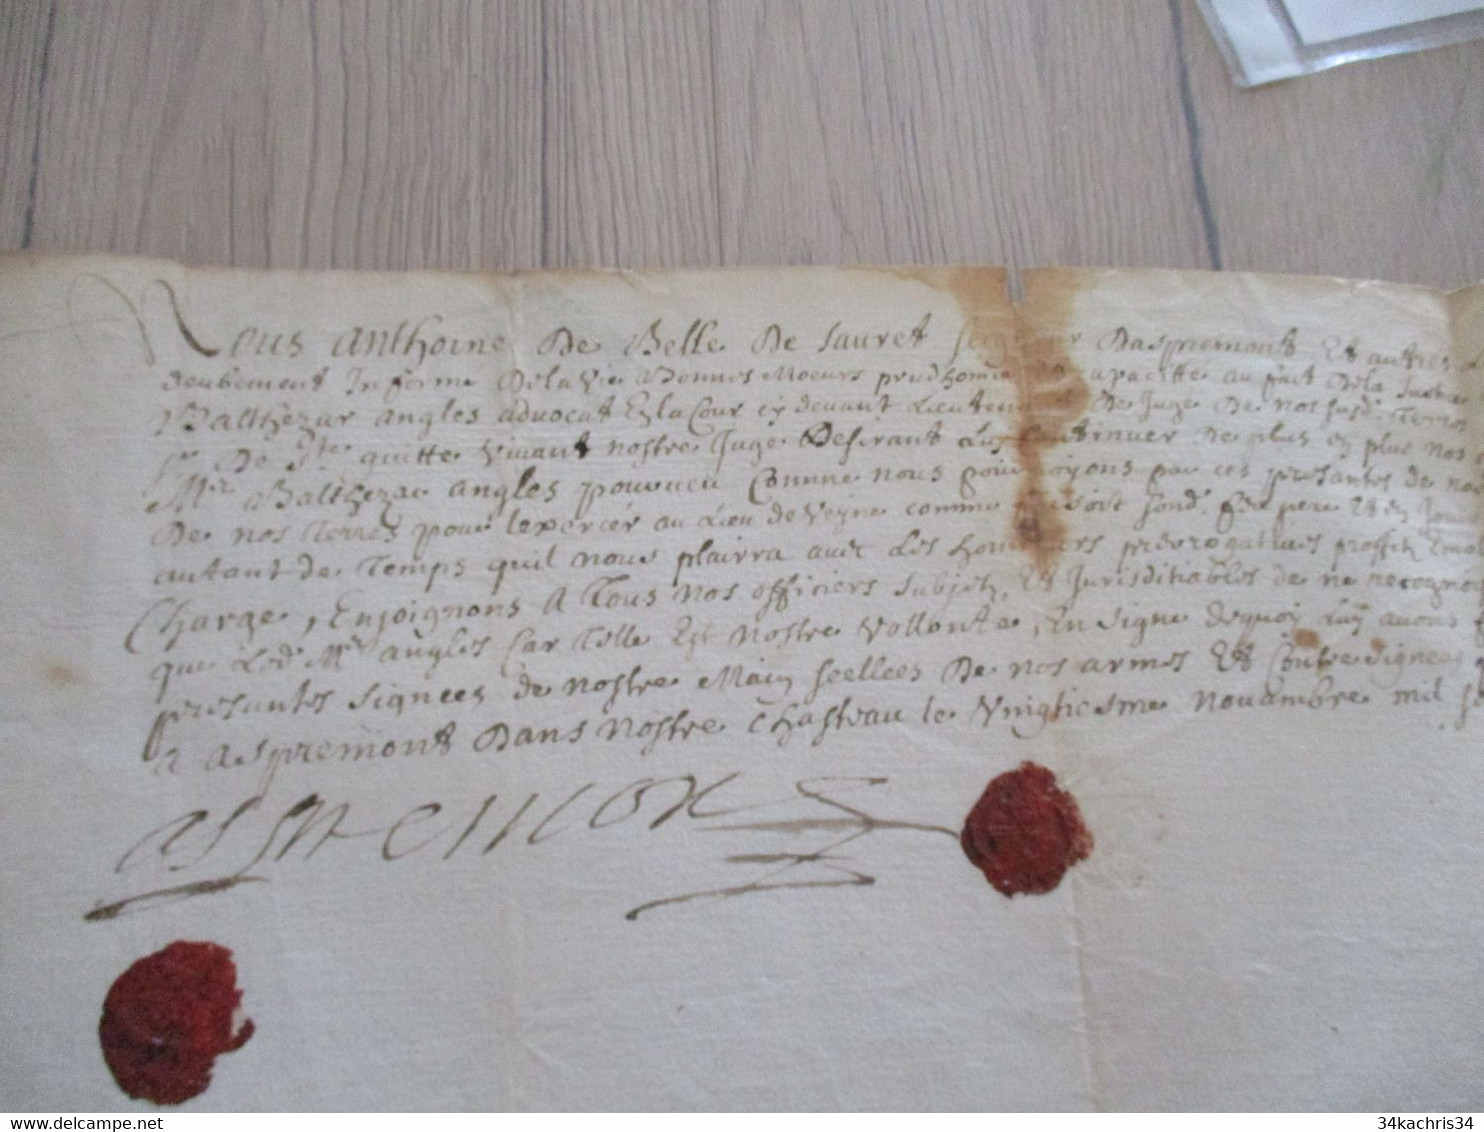 Nous Anthoine De Belle De Sauret Seigneur Daspremont Et autres
deubement Informé Dela vie & bonnes Moeurs prudhomie Et capacitte au fait Dela Justice
Balthezar angles advocat En la Cour cy devant Lieutenant De Juge De nos susd. Terres
Sr De Ste quitte vivant nostre Juge Desirant Luy Continuer De plus en plus nos
Mr Balthezar angles pourveu Comme nous pourvoyons par ces presantes De
De nos Terres pour lexercer au Lieu de Veyne comme faisoit fond. feu pere Et en Jouir
autant de Temps quil nous plairra avec Les honneurs prerogatives proffitz
Charge, Enjoignons A Tous nos officiers subjetz, Et Jurisditiables de ne recognoi
que Led. Mr angles Car Telle Est nostre vollonte, En signe dequoy Luy avons
presantes signees de nostre Main scellees De nos armes Et Contre signees
a aspremont Dans nostre Chasteau le vingtiesme novambre mil
aspremont
34kachris34
delcampe.net